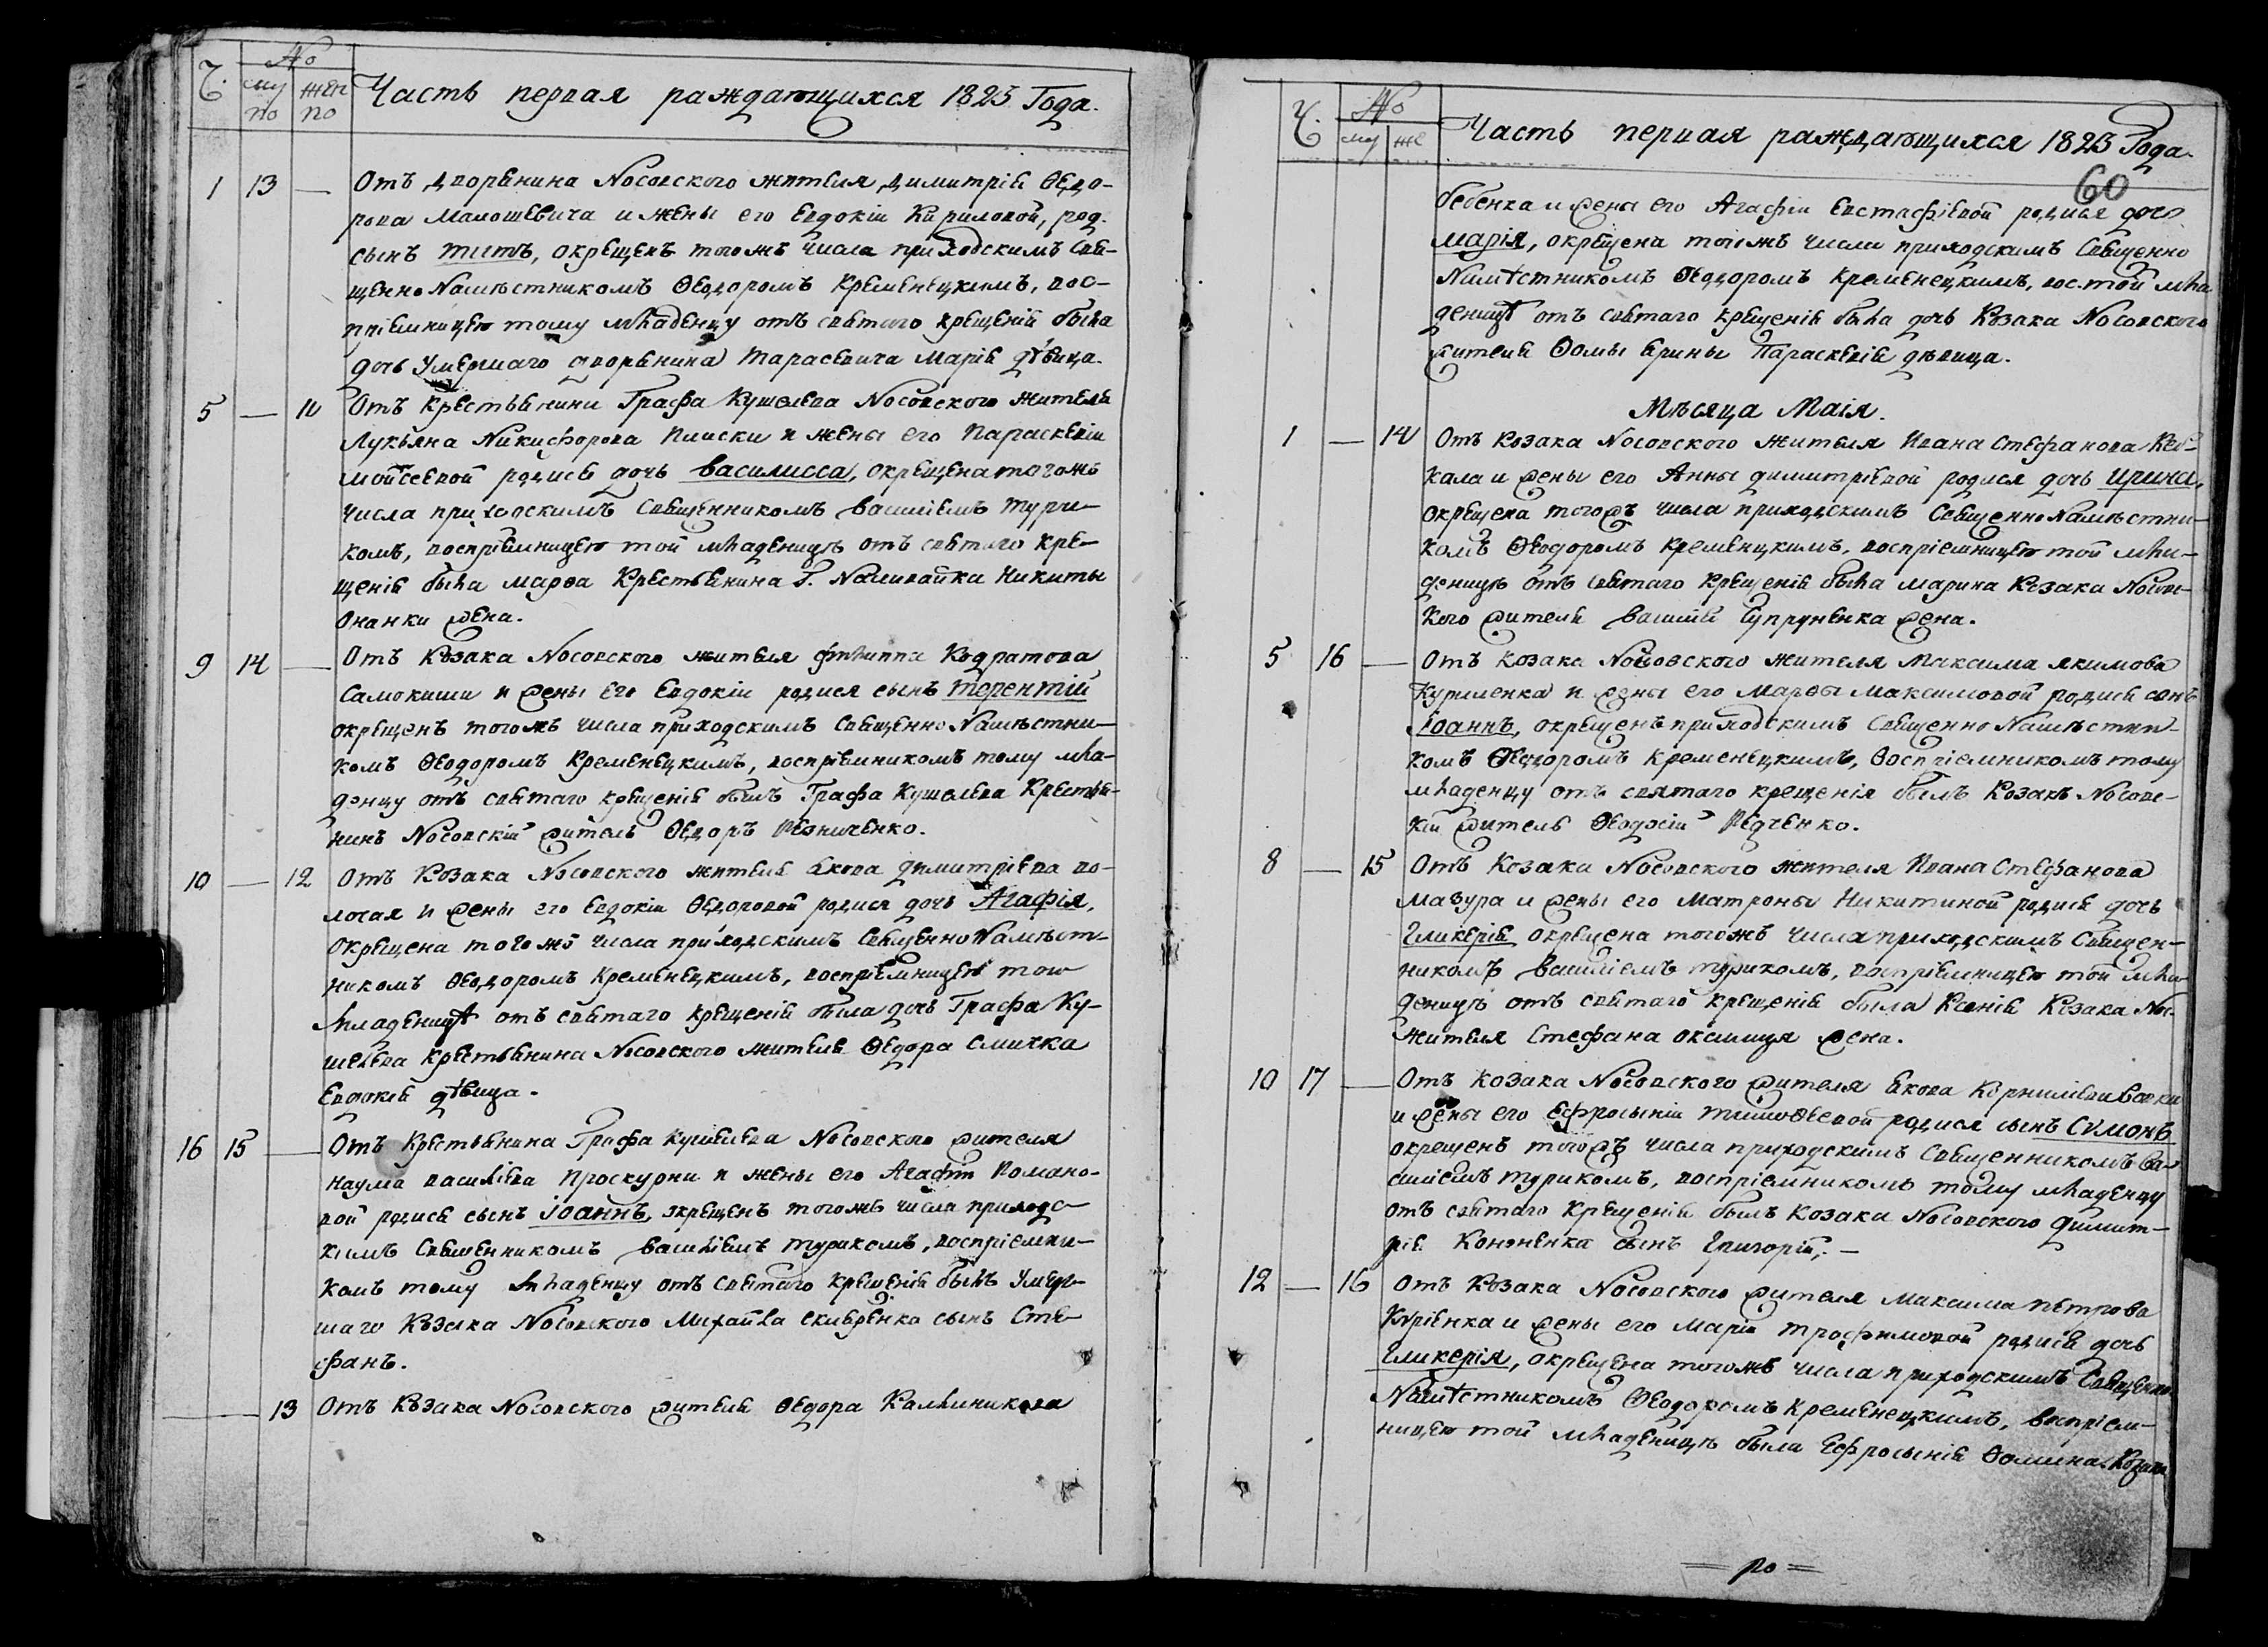 Ч. № му по жен по
Часть первая раждающихся 1825 Года.
1 13 — Отъ дворянина Носовского жителя Димитрія Ѳедо-
рова Малошевича и жены его Евдокіи Кириловой, род.
сынъ Титъ, окрещенъ тогожъ числа приходскимъ Свя-
щенноНамѣстникомъ Ѳеодоромъ Кременецкимъ, вос-
пріемницею тому младенцу отъ святаго крещенія была
дочь умершаго дворянина Тарасевича Марія дѣвица.
5 — 11 Отъ Крестьянина Графа Кушелева Носовского жителя
Лукьяна Никифорова и жены его Параскевіи
Мойсеевой родися дочь Василисса, окрещена тогожъ
числа приходскимъ Священникомъ Василіемъ Тури-
комъ, воспріемницею той младеницѣ отъ святаго кре-
щенія была Марѳа Крестьянина Г. Наливайка Никиты
Онанки жена.
9 14 — Отъ Козака Носовского жителя Филиппа Кодратова
Самокиши и жены его Евдокіи родися сынъ Терентій
окрещенъ тогожъ числа приходскимъ СвященноНамѣстни-
комъ Ѳеодоромъ Кременецкимъ, воспріемникомъ тому мла-
денцу отъ святаго крещенія былъ Графа Кушелева Крестья-
нинъ Носовскій житель Ѳедоръ Резниченко.
10 — 12 Отъ Козака Носовского жителя Якова Димитріева Во-
логая и жены его Евдокіи Ѳедоровой родися дочь Агафія,
окрещена тогожъ числа приходскимъ СвященноНамѣст-
никомъ Ѳеодоромъ Кременецкимъ, воспріемницею той
младеницѣ отъ святаго крещенія была дочь Графа Ку-
шелева Крестьянина Носовского жителя Ѳедора Смичка
Евдокія дѣвица.
16 15 — Отъ Крестьянина Графа Кушелева Носовского жителя
Наума Василіева Проскурни и жены его Агафіи Романо-
вой родися сынъ Іоаннъ, окрещенъ тогожъ числа приходс-
кимъ Священникомъ Василіемъ Турикомъ, воспріемни-
комъ тому младенцу отъ святаго крещенія былъ умер-
шаго Козака Носовского Михайла сынъ Сте-
фанъ.
— — 13 Отъ Козака Носовского жителя Ѳедора Калиникова
Ч. № му же
Часть первая раждающихся 1825 Года.
60
бебенка и жены его Агафіи Евстафіевой родися дочь
Марія, окрещена тогожъ числа приходскимъ Священно
Намѣстникомъ Ѳеодоромъ Кременецкимъ, вос. той мла
деницѣ отъ святаго крещенія была дочь Козака Носовского
жителя Ѳомы Ярины Параскевія дѣвица.
Мѣсяца Маія.
1 — 14 Отъ Козака Носовского жителя Ивана Стефанова Кей-
кала и жены его Анны Димитріевой родися дочь Ирина,
окрещена тогожъ числа приходскимъ СвященноНамѣстни-
комъ Ѳеодоромъ Кременецкимъ, воспріемницею той мла-
деницѣ отъ святаго крещенія была Марина Козака Носовс-
кого жителя Василія Супруненка жена.
5 16 — Отъ Козака Носовского жителя Максима Якимова
Куриленка и жены его Марѳы Максимовой родися сынъ
Іоаннъ, окрещенъ приходскимъ СвященноНамѣстни-
комъ Ѳеодоромъ Кременецкимъ, воспріемникомъ тому
младенцу отъ святаго крещенія былъ Козакъ Носовс-
кій житель Ѳеодосій Редченко.
8 — 15 Отъ Козака Носовского жителя Ивана Стефанова
Мазура и жены его Матроны Никитиной родися дочь
Гликерія окрещена тогожъ числа приходскимъ Священ-
никомъ Василіемъ Турикомъ, воспріемницею той мла-
деницѣ отъ святаго крещенія была Ксенія Козака Нос.
жителя Стефана жена.
10 17 — Отъ Козака Носовского жителя Якова Корниліева
и жены его Ефросыніи Тимоѳеевой родися сынъ Симонъ
окрещенъ тогожъ числа приходскимъ Священникомъ Ва-
силіемъ Турикомъ, воспріемникомъ тому младенцу
отъ святаго крещенія былъ Козака Носовского Димит-
рія Кононенка сынъ Григорій. —
12 — 16 Отъ Козака Носовского жителя Максима Петрова
Куріенка и жены его Маріи Трофимовой родися дочь
Гликерія, окрещена тогожъ числа приходскимъ Священно
Намѣстникомъ Ѳеодоромъ Кременецкимъ, воспріем-
ницею той младеницѣ была Ефросынія Ѳомина Козака
= ро =